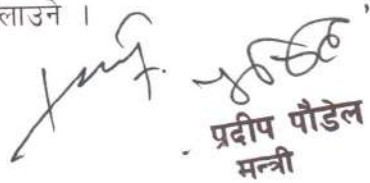 लाउने ।
प्रदीप पौडेल
मन्त्री